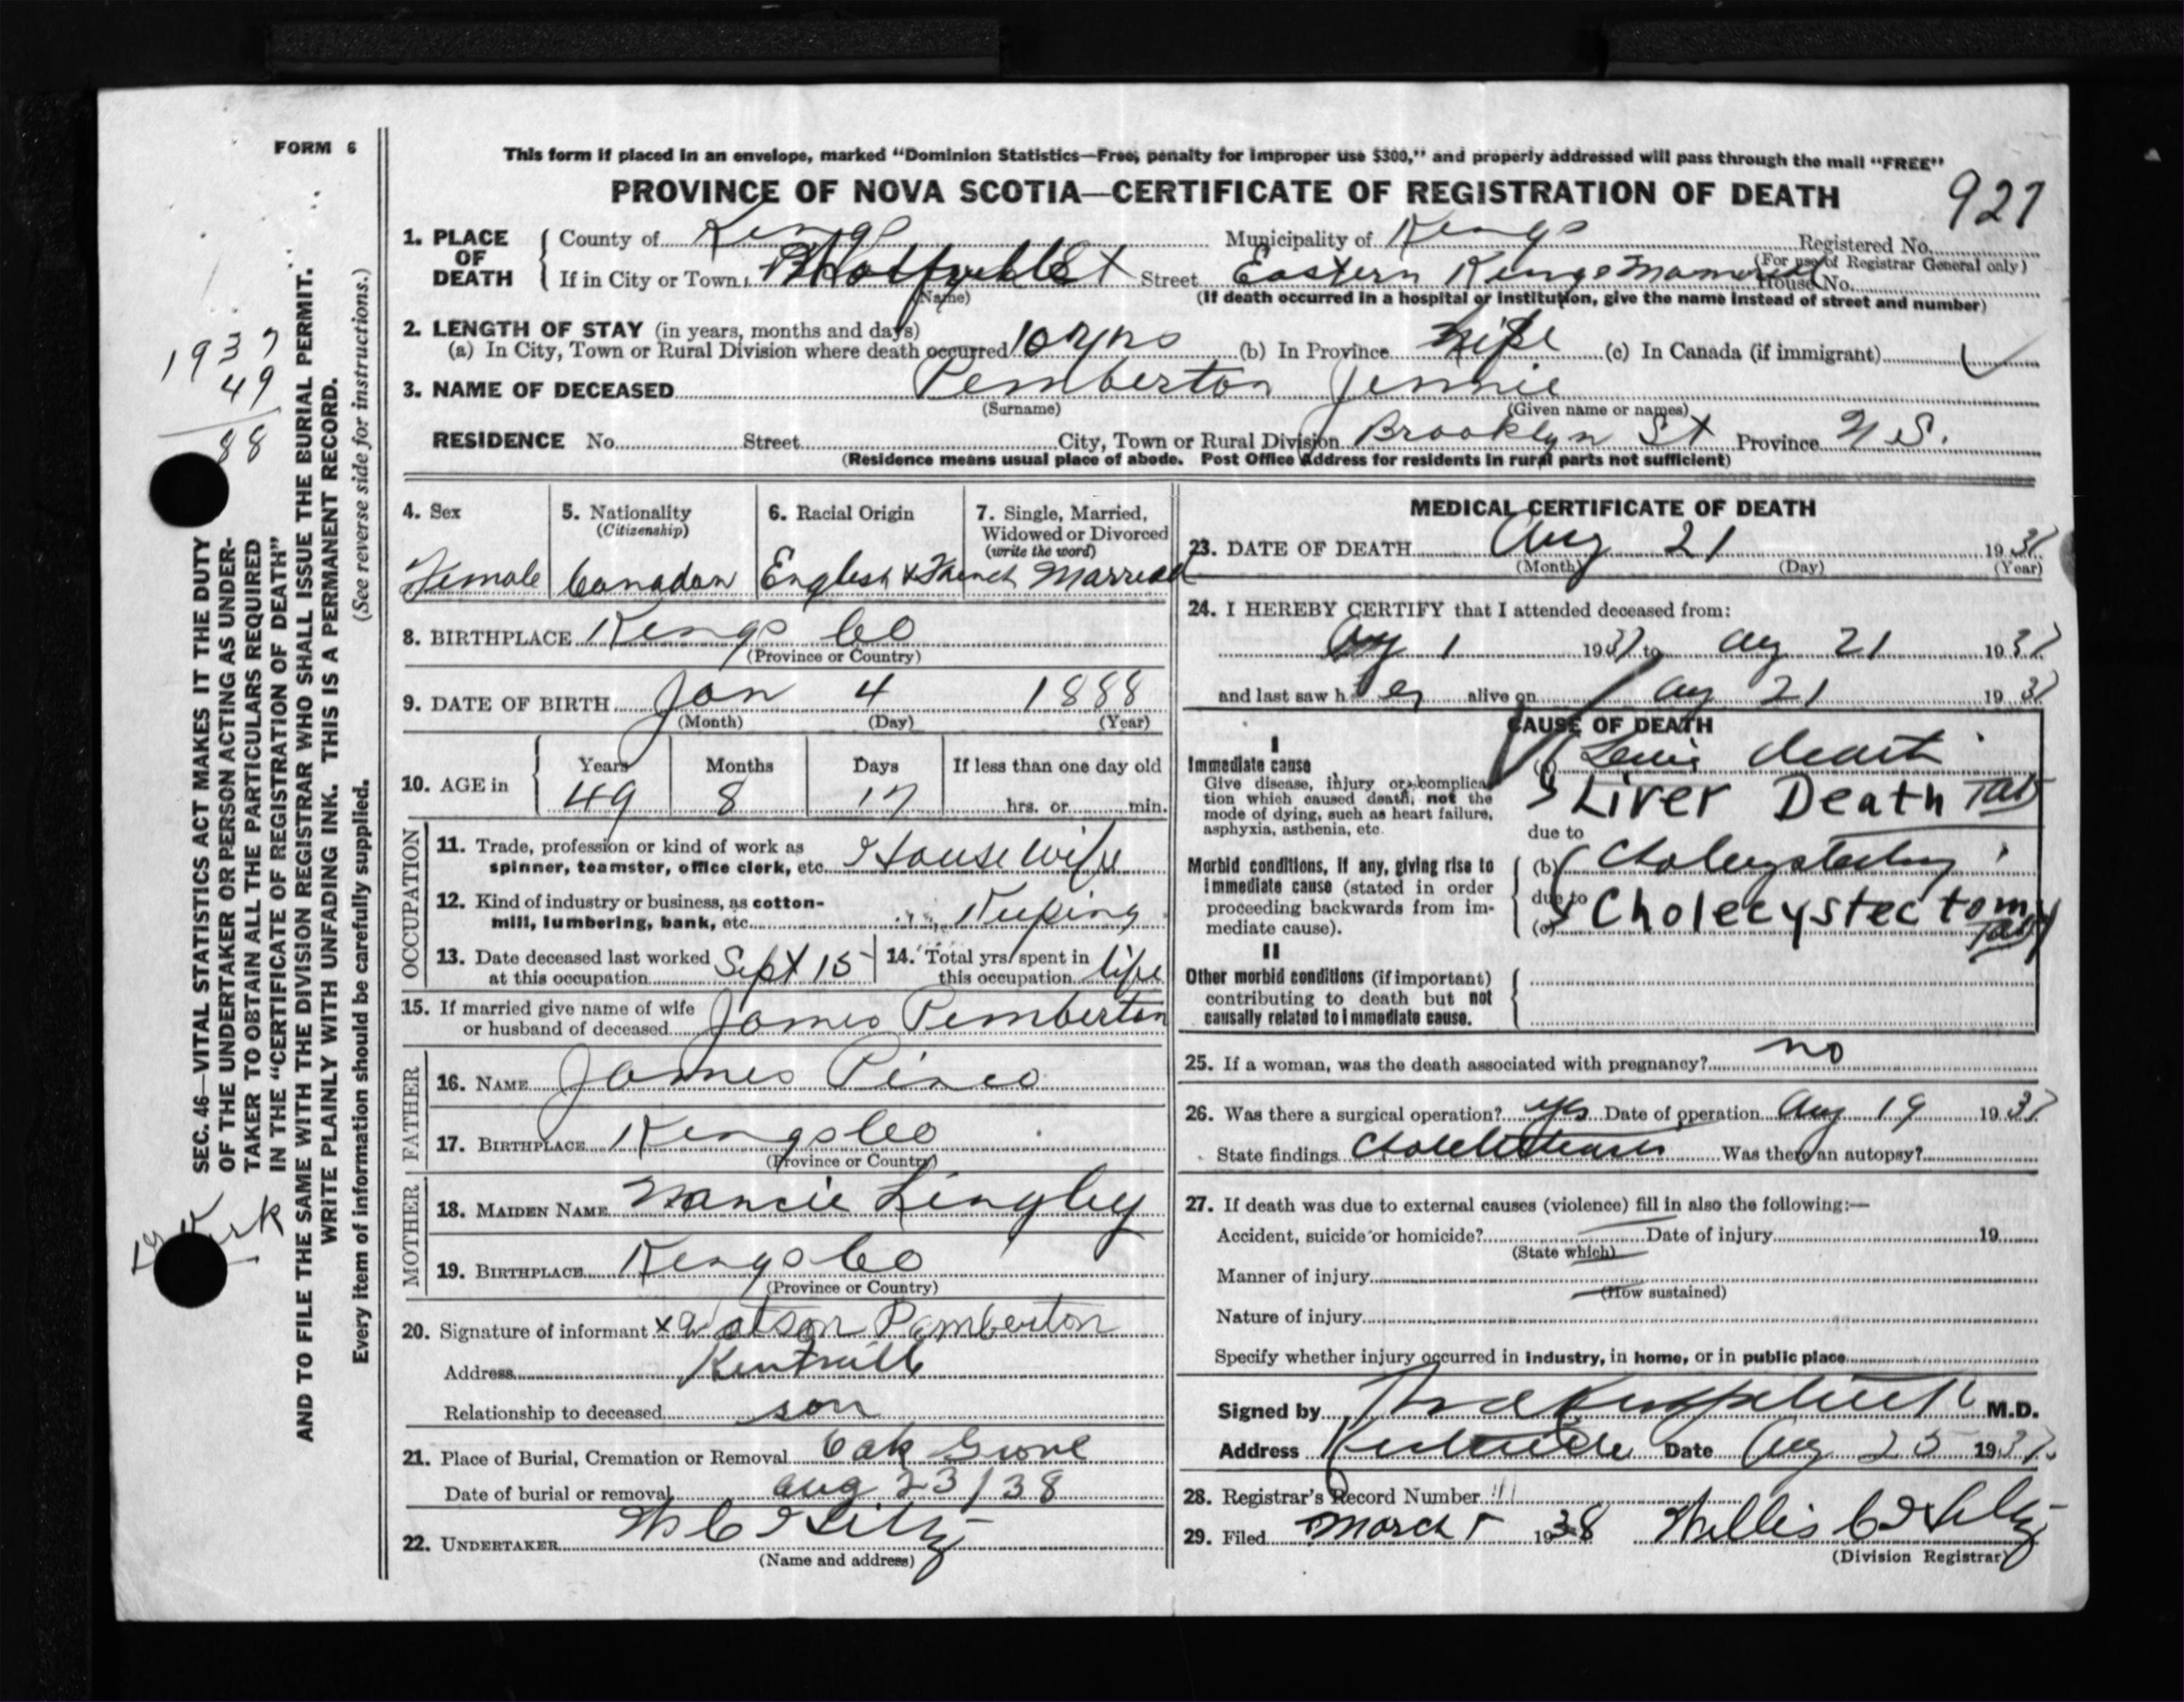 FORM 6
This form if placed in an envelope, marked "Dominion Statistics—Free, penalty for improper use $300," and properly addressed will pass through the mail "FREE"
PROVINCE OF NOVA SCOTIA—CERTIFICATE OF REGISTRATION OF DEATH
927
1. PLACE OF DEATH
County of Kings Municipality of Kings Registered No.
(For use of Registrar General only)
If in City or Town Wolfville St Street Eastern Kings Mamorial House No.
(Name) (If death occurred in a hospital or institution, give the name instead of street and number)
2. LENGTH OF STAY (in years, months and days)
(a) In City, Town or Rural Division where death occurred 10 yrs (b) In Province life (c) In Canada (if immigrant)
3. NAME OF DECEASED Pemberton Jennie
(Surname) (Given name or names)
RESIDENCE No. Street City, Town or Rural Division Brooklyn St Province N S.
(Residence means usual place of abode. Post Office Address for residents in rural parts not sufficient)
4. Sex
Female
5. Nationality
(Citizenship)
Canadan
6. Racial Origin
English & French
7. Single, Married,
Widowed or Divorced
(write the word)
Married
8. BIRTHPLACE Kings Co
(Province or Country)
9. DATE OF BIRTH Jan 4 1888
(Month) (Day) (Year)
10. AGE in
Years Months Days If less than one day old
49 8 17 hrs. or min.
OCCUPATION
11. Trade, profession or kind of work as
spinner, teamster, office clerk, etc. House Wife
12. Kind of industry or business, as cotton-
mill, lumbering, bank, etc. Keeping
13. Date deceased last worked
at this occupation Sept 15
14. Total yrs spent in
this occupation life
15. If married give name of wife
or husband of deceased James Pemberton
FATHER
16. NAME James
17. BIRTHPLACE Kings Co
(Province or Country)
MOTHER
18. MAIDEN NAME Nancie Lingley
19. BIRTHPLACE Kings Co
(Province or Country)
20. Signature of informant x Watson Pemberton
Address Kentville
Relationship to deceased son
21. Place of Burial, Cremation or Removal Oak Grove
Date of burial or removal aug 23/38
22. UNDERTAKER W C
(Name and address)
MEDICAL CERTIFICATE OF DEATH
23. DATE OF DEATH Aug 21 1937
(Month) (Day) (Year)
24. I HEREBY CERTIFY that I attended deceased from:
Aug 1 1937 to Aug 21 1937
and last saw h er alive on Aug 21 1937
CAUSE OF DEATH
I
Immediate cause
Give disease, injury or complica-
tion which caused death, not the
mode of dying, such as heart failure,
asphyxia, asthenia, etc.
Liver Death
due to
Morbid conditions, if any, giving rise to
immediate cause (stated in order
proceeding backwards from im-
mediate cause).
(b)
due to
(c) Cholecystectomy
II
Other morbid conditions (if important)
contributing to death but not
causally related to immediate cause.
25. If a woman, was the death associated with pregnancy? no
26. Was there a surgical operation? yes Date of operation Aug 19 1937
State findings Was there an autopsy?
27. If death was due to external causes (violence) fill in also the following:—
Accident, suicide or homicide? Date of injury 19
(State which)
Manner of injury
(How sustained)
Nature of injury
Specify whether injury occurred in industry, in home, or in public place
Signed by M.D.
Address Kentville Date Aug 25 1937
28. Registrar's Record Number
29. Filed March 1938 Willis C
(Division Registrar)
1937
49
88
SEC. 46—VITAL STATISTICS ACT MAKES IT THE DUTY
OF THE UNDERTAKER OR PERSON ACTING AS UNDER-
TAKER TO OBTAIN ALL THE PARTICULARS REQUIRED
IN THE "CERTIFICATE OF REGISTRATION OF DEATH"
AND TO FILE THE SAME WITH THE DIVISION REGISTRAR WHO SHALL ISSUE THE BURIAL PERMIT.
WRITE PLAINLY WITH UNFADING INK. THIS IS A PERMANENT RECORD.
Every item of information should be carefully supplied. (See reverse side for instructions.)